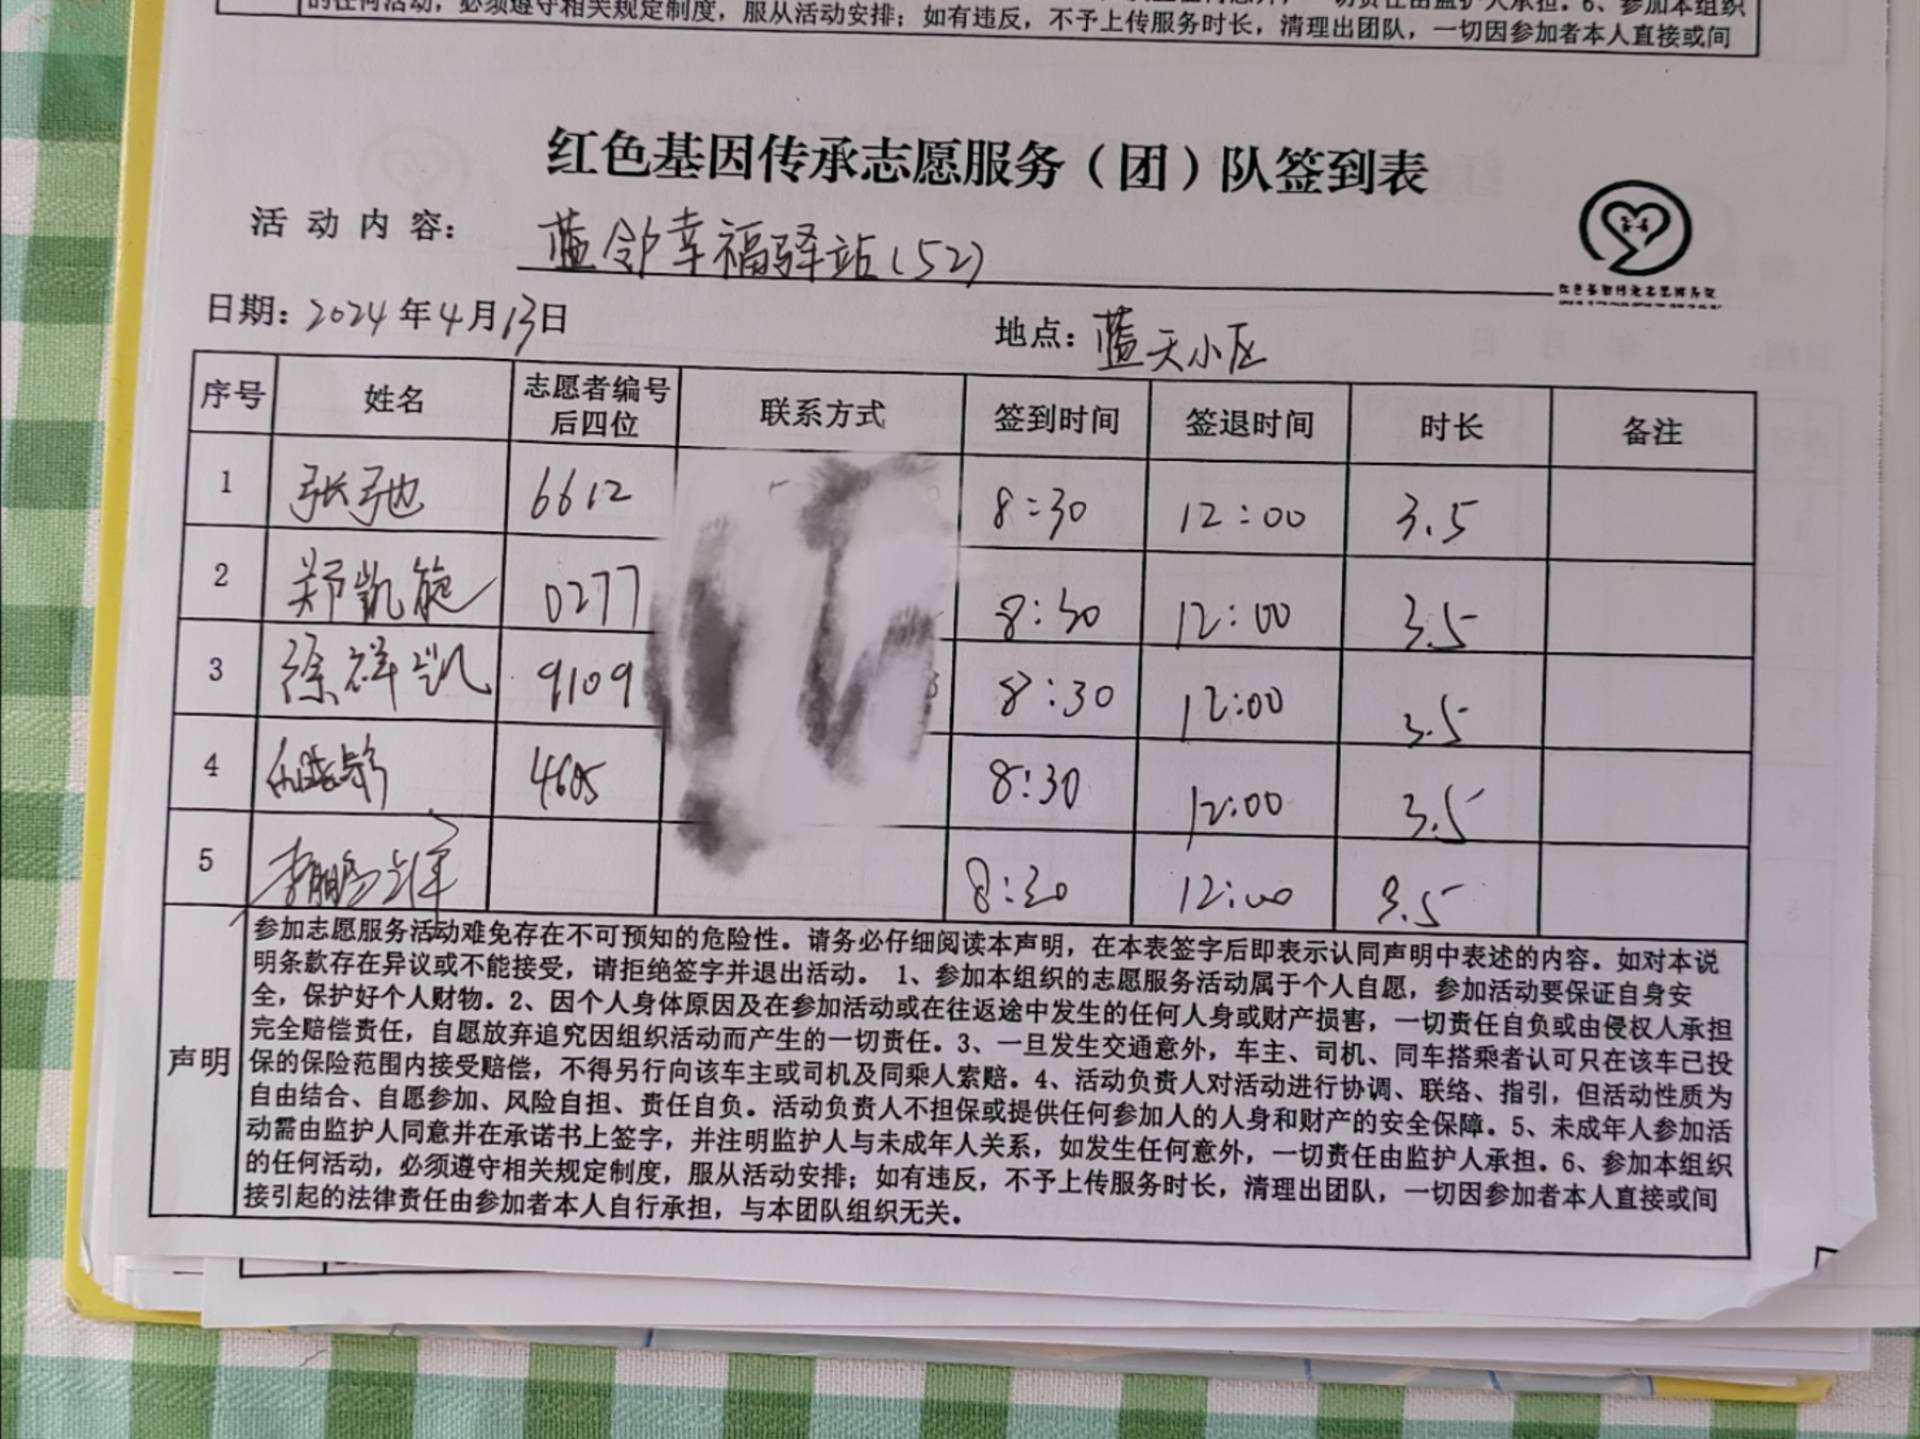 的任何活动，必须遵守相关规定制度，服从活动安排；如有违反，不予上传服务时长，清理出团队，一切因参加者本人直接或间
红色基因传承志愿服务（团）队签到表
活动内容：蓝邻幸福驿站(52)
日期：2024年4月13日 地点：蓝天小区
序号 姓名 志愿者编号后四位 联系方式 签到时间 签退时间 时长 备注
1 张弛 6612 8:30 12:00 3.5
2 郑凯旋 0277 8:30 12:00 3.5
3 徐祥凯 9109 8:30 12:00 3.5
4 4605 8:30 12:00 3.5
5 8:30 12:00 3.5
声明
参加志愿服务活动难免存在不可预知的危险性。请务必仔细阅读本声明，在本表签字后即表示认同声明中表述的内容。如对本说
明条款存在异议或不能接受，请拒绝签字并退出活动。 1、参加本组织的志愿服务活动属于个人自愿，参加活动要保证自身安
全，保护好个人财物。2、因个人身体原因及在参加活动或在往返途中发生的任何人身或财产损害，一切责任自负或由侵权人承担
完全赔偿责任，自愿放弃追究因组织活动而产生的一切责任。3、一旦发生交通意外，车主、司机、同车搭乘者认可只在该车已投
保的保险范围内接受赔偿，不得另行向该车主或司机及同乘人索赔。4、活动负责人对活动进行协调、联络、指引，但活动性质为
自由结合、自愿参加、风险自担、责任自负。活动负责人不担保或提供任何参加人的人身和财产的安全保障。5、未成年人参加活
动需由监护人同意并在承诺书上签字，并注明监护人与未成年人关系，如发生任何意外，一切责任由监护人承担。6、参加本组织
的任何活动，必须遵守相关规定制度，服从活动安排；如有违反，不予上传服务时长，清理出团队，一切因参加者本人直接或间
接引起的法律责任由参加者本人自行承担，与本团队组织无关。